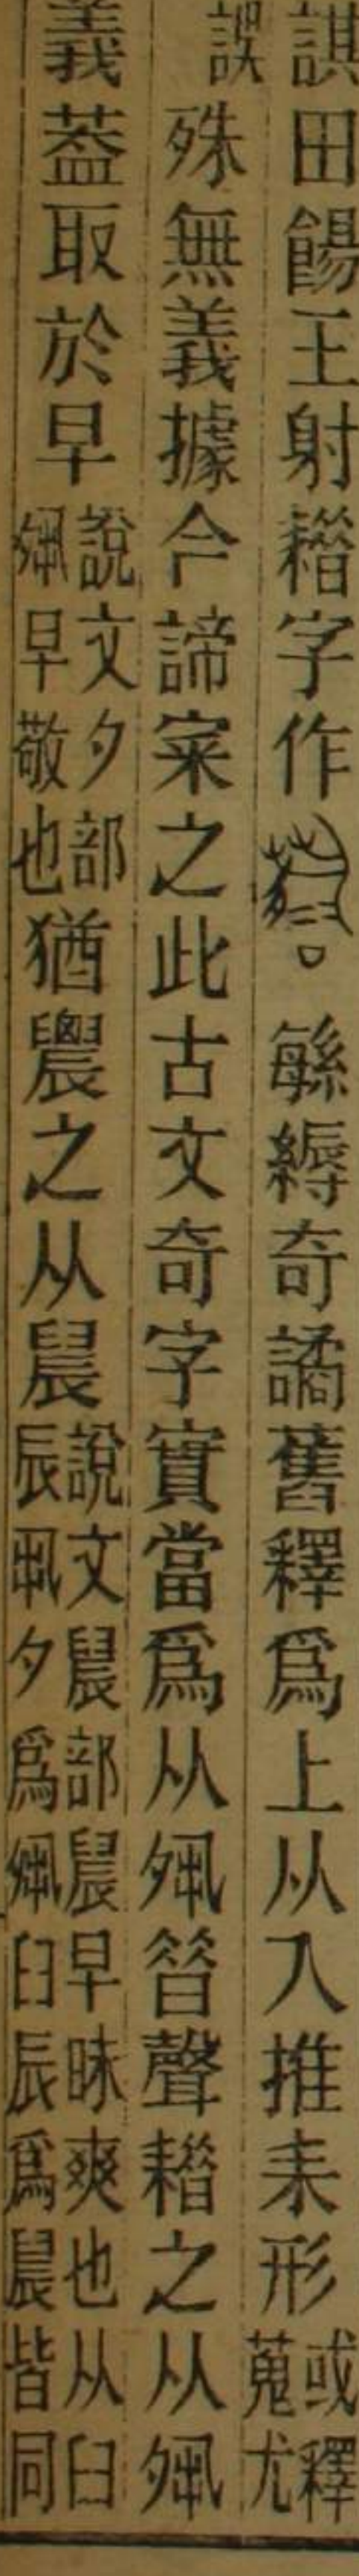 諆田餳王射耤字作 緐縟奇譎舊釋爲上从入推耒形或釋蒐尤
誤殊無義據今諦宷之此古文奇字實當爲从𡖊㫺聲耤之从𡖊
義葢取於早說文夕部𡖊早敬也猶䢅之从晨說文晨部晨早昧爽也从臼辰丮夕爲𡖊臼辰爲晨皆同